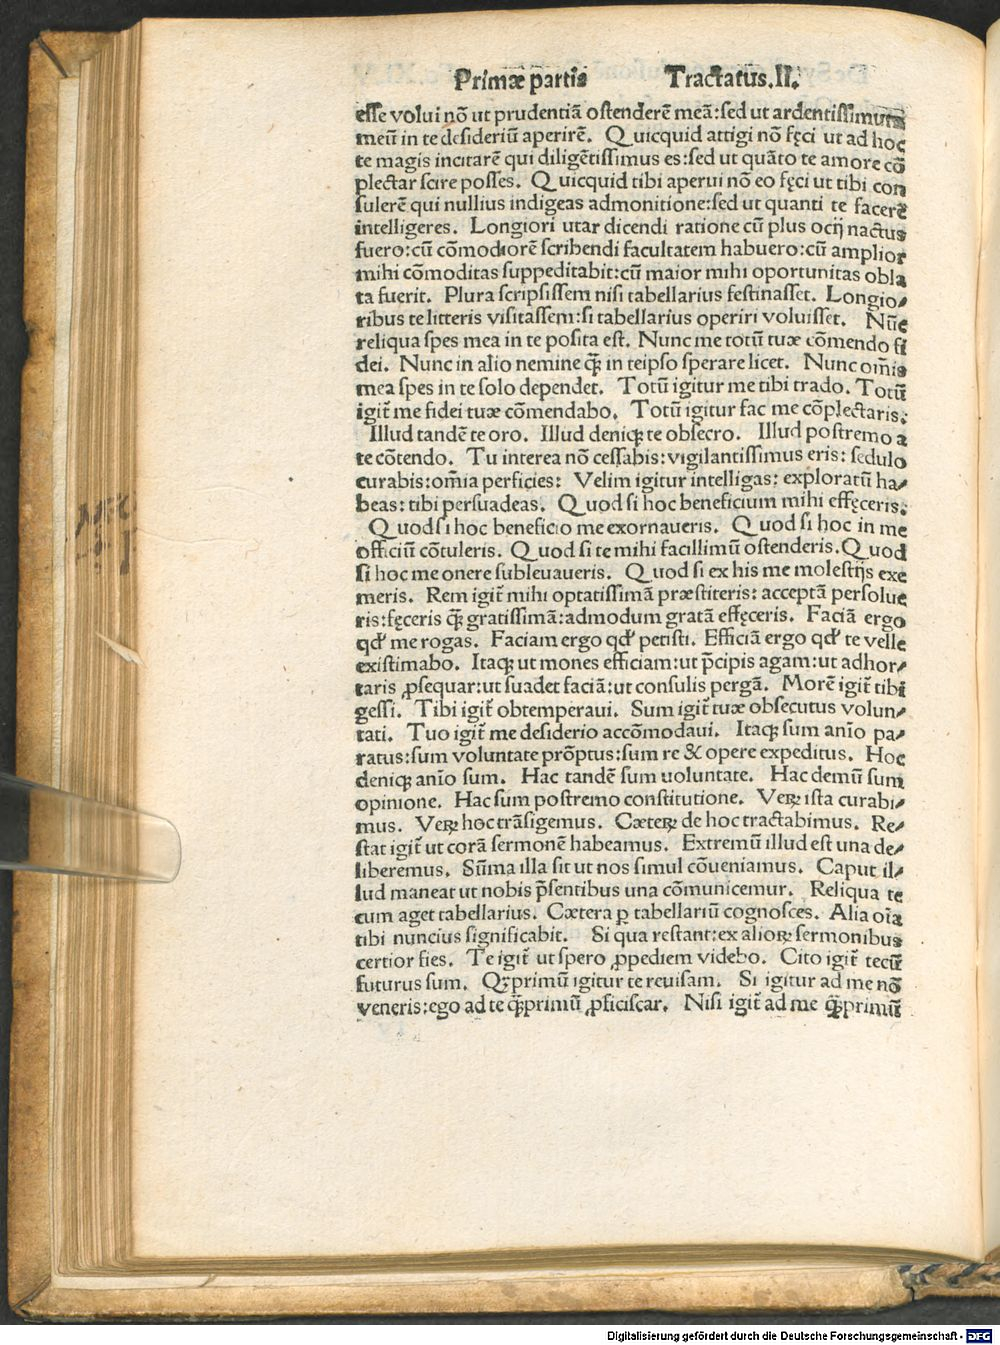 Primæ partis Tractatus.II.
esse volui nõ ut prudentiã ostenderẽ meã:sed ut ardentissimum
meũ in te desideriũ aperirẽ. Quicquid attigi nõ fęci ut ad hoc
te magis incitarẽ qui diligẽtissimus es:sed ut quãto te amore cõ
plectar scire posses. Quicquid tibi aperui nõ eo fęci ut tibi con
sulerẽ qui nullius indigeas admonitione:sed ut quanti te facerẽ
intelligeres. Longiori utar dicendi ratione cũ plus ocij nactus
fuero:cũ cõmodiorẽ scribendi facultatem habuero:cũ amplior
mihi cõmoditas suppeditabit:cũ maior mihi oportunitas obla
ta fuerit. Plura scripsissem nisi tabellarius festinasset. Longio-
ribus te litteris visitassem:si tabellarius operiri voluisset. Nũc
reliqua spes mea in te posita est. Nunc me totũ tuæ cõmendo fi
dei. Nunc in alio nemine q̃ꝫ in teipso sperare licet. Nunc om̃is
mea spes in te solo dependet. Totũ igitur me tibi trado. Totũ
igit̃ me fidei tuæ cõmendabo. Totũ igitur fac me cõplectaris:
Illud tandẽ te oro. Illud deniqꝫ te obsecro. Illud postremo a
te cõtendo. Tu interea nõ cessabis:vigilantissimus eris: sedulo
curabis:om̃ia perficies: Velim igitur intelligas: exploratũ ha-
beas: tibi persuadeas. Quod si hoc beneficium mihi effęceris:
Quod si hoc beneficio me exornaueris. Quod si hoc in me
officiũ cõtuleris. Quod si te mihi facillimũ ostenderis.Quod
si hoc me onere subleuaueris. Quod si ex his me molestijs exe
meris. Rem igit̃ mihi optatissimã præstiteris: acceptã persolue
ris:fęceris q̃ꝫ gratissimã:admodum gratã effęceris. Faciã ergo
qđ me rogas. Faciam ergo qđ petisti. Efficiã ergo qđ te velle
existimabo. Itaqꝫ ut mones efficiam:ut p̃cipis agam:ut adhor-
taris ꝓsequar:ut suadet faciã:ut consulis pergã. Morẽ igit̃ tibi
gessi. Tibi igit̃ obtemperaui. Sum igit̃ tuæ obsecutus volun-
tati. Tuo igit̃ me desiderio accõmodaui. Itaqꝫ sum anĩo pa-
ratus:sum voluntate prõptus:sum re & opere expeditus. Hoc
deniqꝫ anĩo sum. Hac tandẽ sum uoluntate. Hac demũ sum
opinione. Hac sum postremo constitutione. Veꝝ ista curabi-
mus. Veꝝ hoc trãsigemus. Cæteꝝ de hoc tractabimus. Re-
stat igit̃ ut corã sermonẽ habeamus. Extremũ illud est una de-
liberemus. Sũma illa sit ut nos simul cõueniamus. Caput il-
lud maneat ut nobis p̃sentibus una cõmunicemur. Reliqua te
cum aget tabellarius. Cætera ꝑ tabellariũ cognosces. Alia oĩa
tibi nuncius significabit. Si qua restant:ex alioꝝ sermonibus
certior fies. Te igit̃ ut spero ꝓpediem videbo. Cito igit̃ tecũ
futurus sum. Qꝫprimũ igitur te reuisam. Si igitur ad me nõ
veneris:ego ad te q̃ꝫprimũ ꝓficiscar. Nisi igit̃ ad me q̃ꝫprimũ
Digitalisierung gefördert durch die Deutsche Forschungsgemeinschaft - DFG